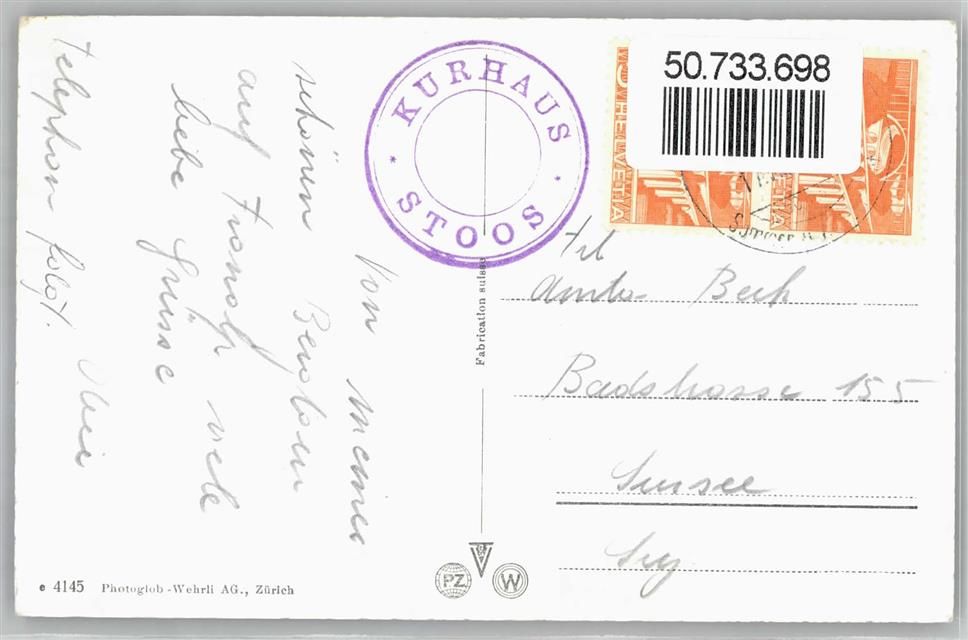 50.733.698
HELVETIA
HELVETIA
KURHAUS
STOOS
Von meiner
schönen
auf Fronalp viele
liebe Grüsse
Telephon folgt.
Frl
Beck
Badstrasse 155
Sursee
Fabrication suisse
PZ
W
e 4145 Photoglob-Wehrli AG., Zürich